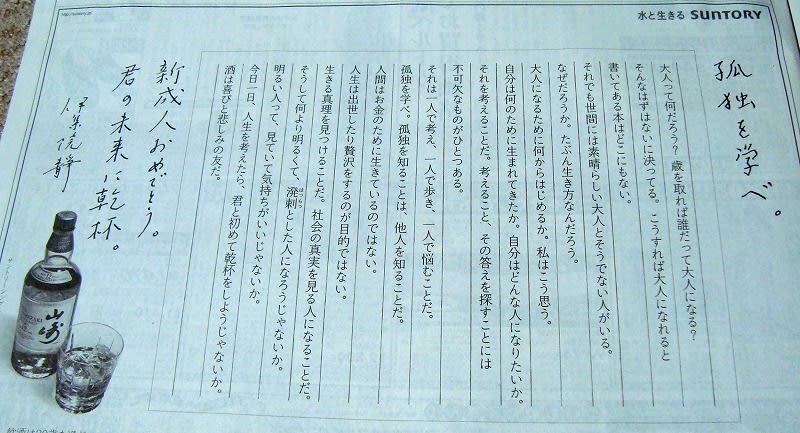 http://suntory.jp
水と生きる SUNTORY
孤独を学べ。
大人って何だろう？ 歳を取れば誰だって大人になる？
そんなはずはないに決ってる。こうすれば大人になれると
書いてある本はどこにもない。
それでも世間には素晴らしい大人とそうでない人がいる。
なぜだろうか。たぶん生き方なんだろう。
大人になるために何からはじめるか。私はこう思う。
自分は何のために生まれてきたか。自分はどんな人になりたいか。
それを考えることだ。考えること、その答えを探すことには
不可欠なものがひとつある。
それは一人で考え、一人で歩き、一人で悩むことだ。
孤独を学べ。孤独を知ることは、他人を知ることだ。
人間はお金のために生きているのではない。
人生は出世したり贅沢をするのが目的ではない。
生きる真理を見つけることだ。社会の真実を見る人になることだ。
そうして何より明るくて、溌剌とした人になろうじゃないか。
はつらつ
明るい人って、見ていて気持ちがいいじゃないか。
今日一日、人生を考えたら、君と初めて乾杯をしようじゃないか。
酒は喜びと悲しみの友だ。
新成人おめでとう。
君の未来に乾杯。
伊集院静
山崎